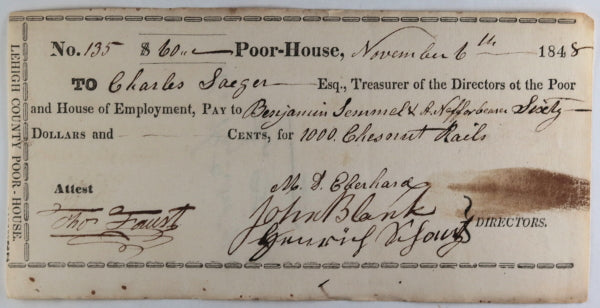 LEHIGH COUNTY POOR-HOUSE.
No. 135 $ 60 Poor-House, November 6th 1848
TO Charles Saeger Esq., Treasurer of the Directors ot the Poor
and House of Employment, PAY to Benjamin Semmel & or bearer Sixty
DOLLARS and — CENTS, for 1000 Chesnut Rails
Attest
Thos Faust
M. D. Eberhard
John Blank
DIRECTORS.